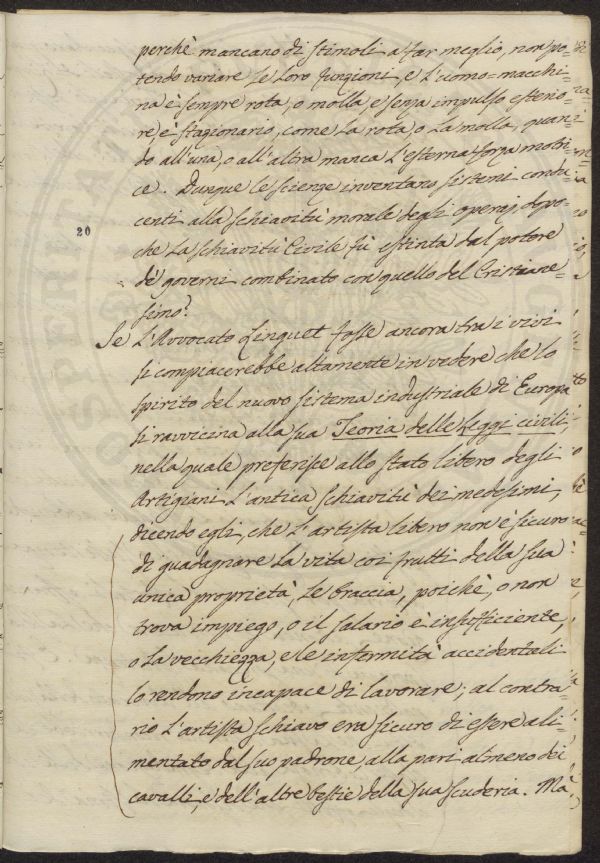 perchè mancano di stimoli a far meglio, non po=
tendo variare le loro funzioni, e l'uomo-macchi=
na è sempre rota, o molla, e senza impulso esterio=
re, è stazionario, come la rota, o la molla, quan=
do all'una, o all'altra manca l'esterna forza motri=
ce. Dunque le scienze inventano sistemi condu=
centi alla schiavitù morale degli operaj, dopo=
20
che la schiavitù Civile fù estinta dal potere
de' governi combinato con quello del Cristiane=
simo?
Se l'Avvocato Linguet fosse ancora tra i vivi
si compiacerebbe altamente in vedere che lo
spirito del nuovo sistema industriale di Europa
si ravvicina alla sua Teoria delle Leggi civili,
nella quale preferisce allo stato libero degli
Artigiani l'antica schiavitù dei medesimi,
dicendo egli, che l'artista libero non è sicuro
di guadagnare la vita coi frutti della sua
unica proprietà, le braccia, poichè, o non
trova impiego, o il salario è insufficiente,
o la vecchiezza, e le infermità accidentali
lo rendono incapace di lavorare; al contra=
rio l'artista schiavo era sicuro di essere ali=
mentato dal suo padrone, alla pari almeno dei
cavalli, e dell'altre bestie della sua scuderia. Ma